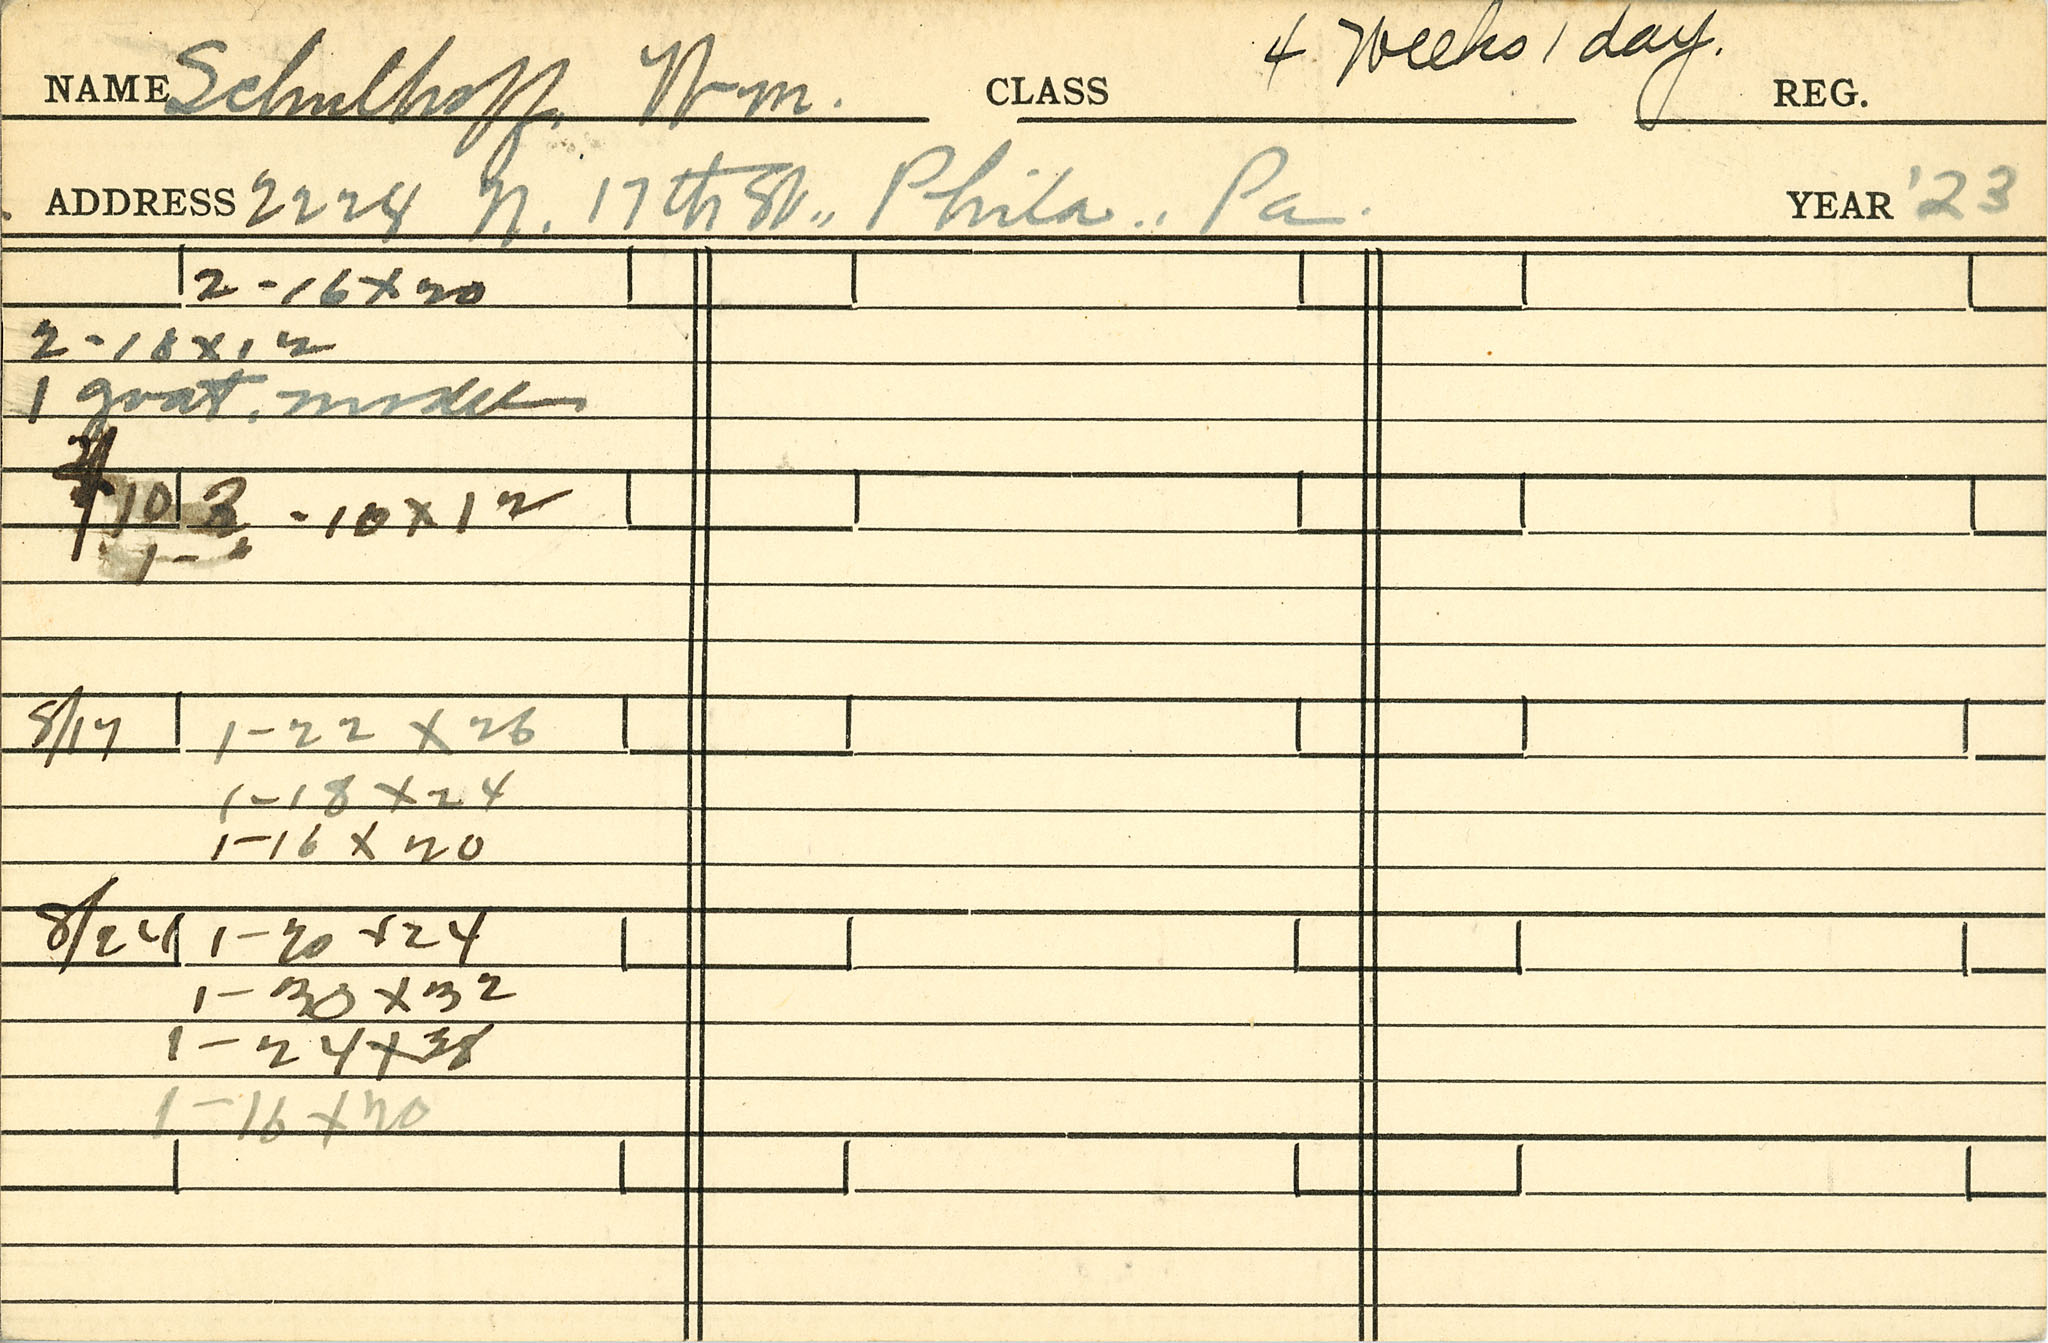 NAME Schulhoff, Wm. CLASS 4 Weeks 1 day. REG.
ADDRESS 2228 N. 17th St., Phila., Pa. YEAR '23
2-16x20
2-18x12
1 goat. model
10 3 -10x12
1-
8/17 1-22 x 26
1-18 x 24
1-16 x 20
8/24 1-20 x 24
1-30 x 32
1-24 x
1-16 x 20